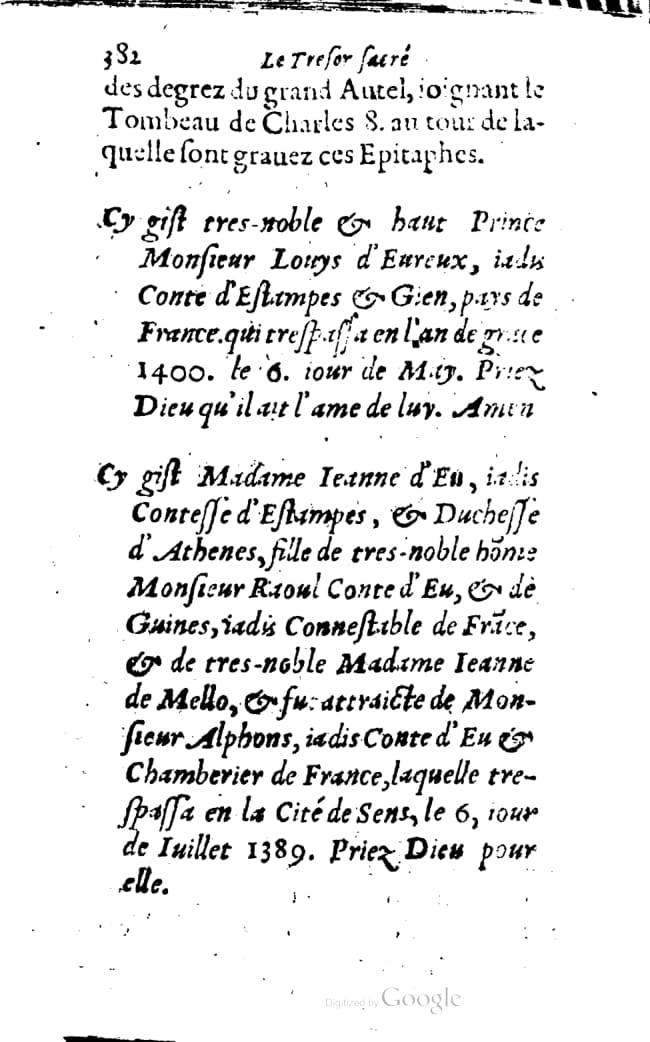 382 Le Treſor ſacré
des degrez du grand Autel, ioignant le
Tombeau de Charles 8. au tour de la-
quelle ſont grauez ces Epitaphes.
Cy giſt tres-noble & haut Prince
Monſieur Louys d'Eureux, iadis
Conte d'Eſtampes & Gien, pays de
France. qui treſpaſſa en l'an de grace
1400. le 6. iour de May. Priez
Dieu qu'il ait l'ame de luy. Amen
Cy giſt Madame Ieanne d'Eu, iadis
Conteſſe d'Eſtampes, & Ducheſſe
d'Athenes, fille de tres-noble hõme
Monſieur Raoul Conte d'Eu, & de
Guines, iadis Conneſtable de Frãce,
& de tres-noble Madame Ieanne
de Mello, & fut attraicte de Mon-
ſieur Alphons, iadis Conte d'Eu &
Chamberier de France, laquelle tre-
ſpaſſa en la Cité de Sens, le 6, iour
de Iuillet 1389. Priez Dieu pour
elle.
Digitized by Google